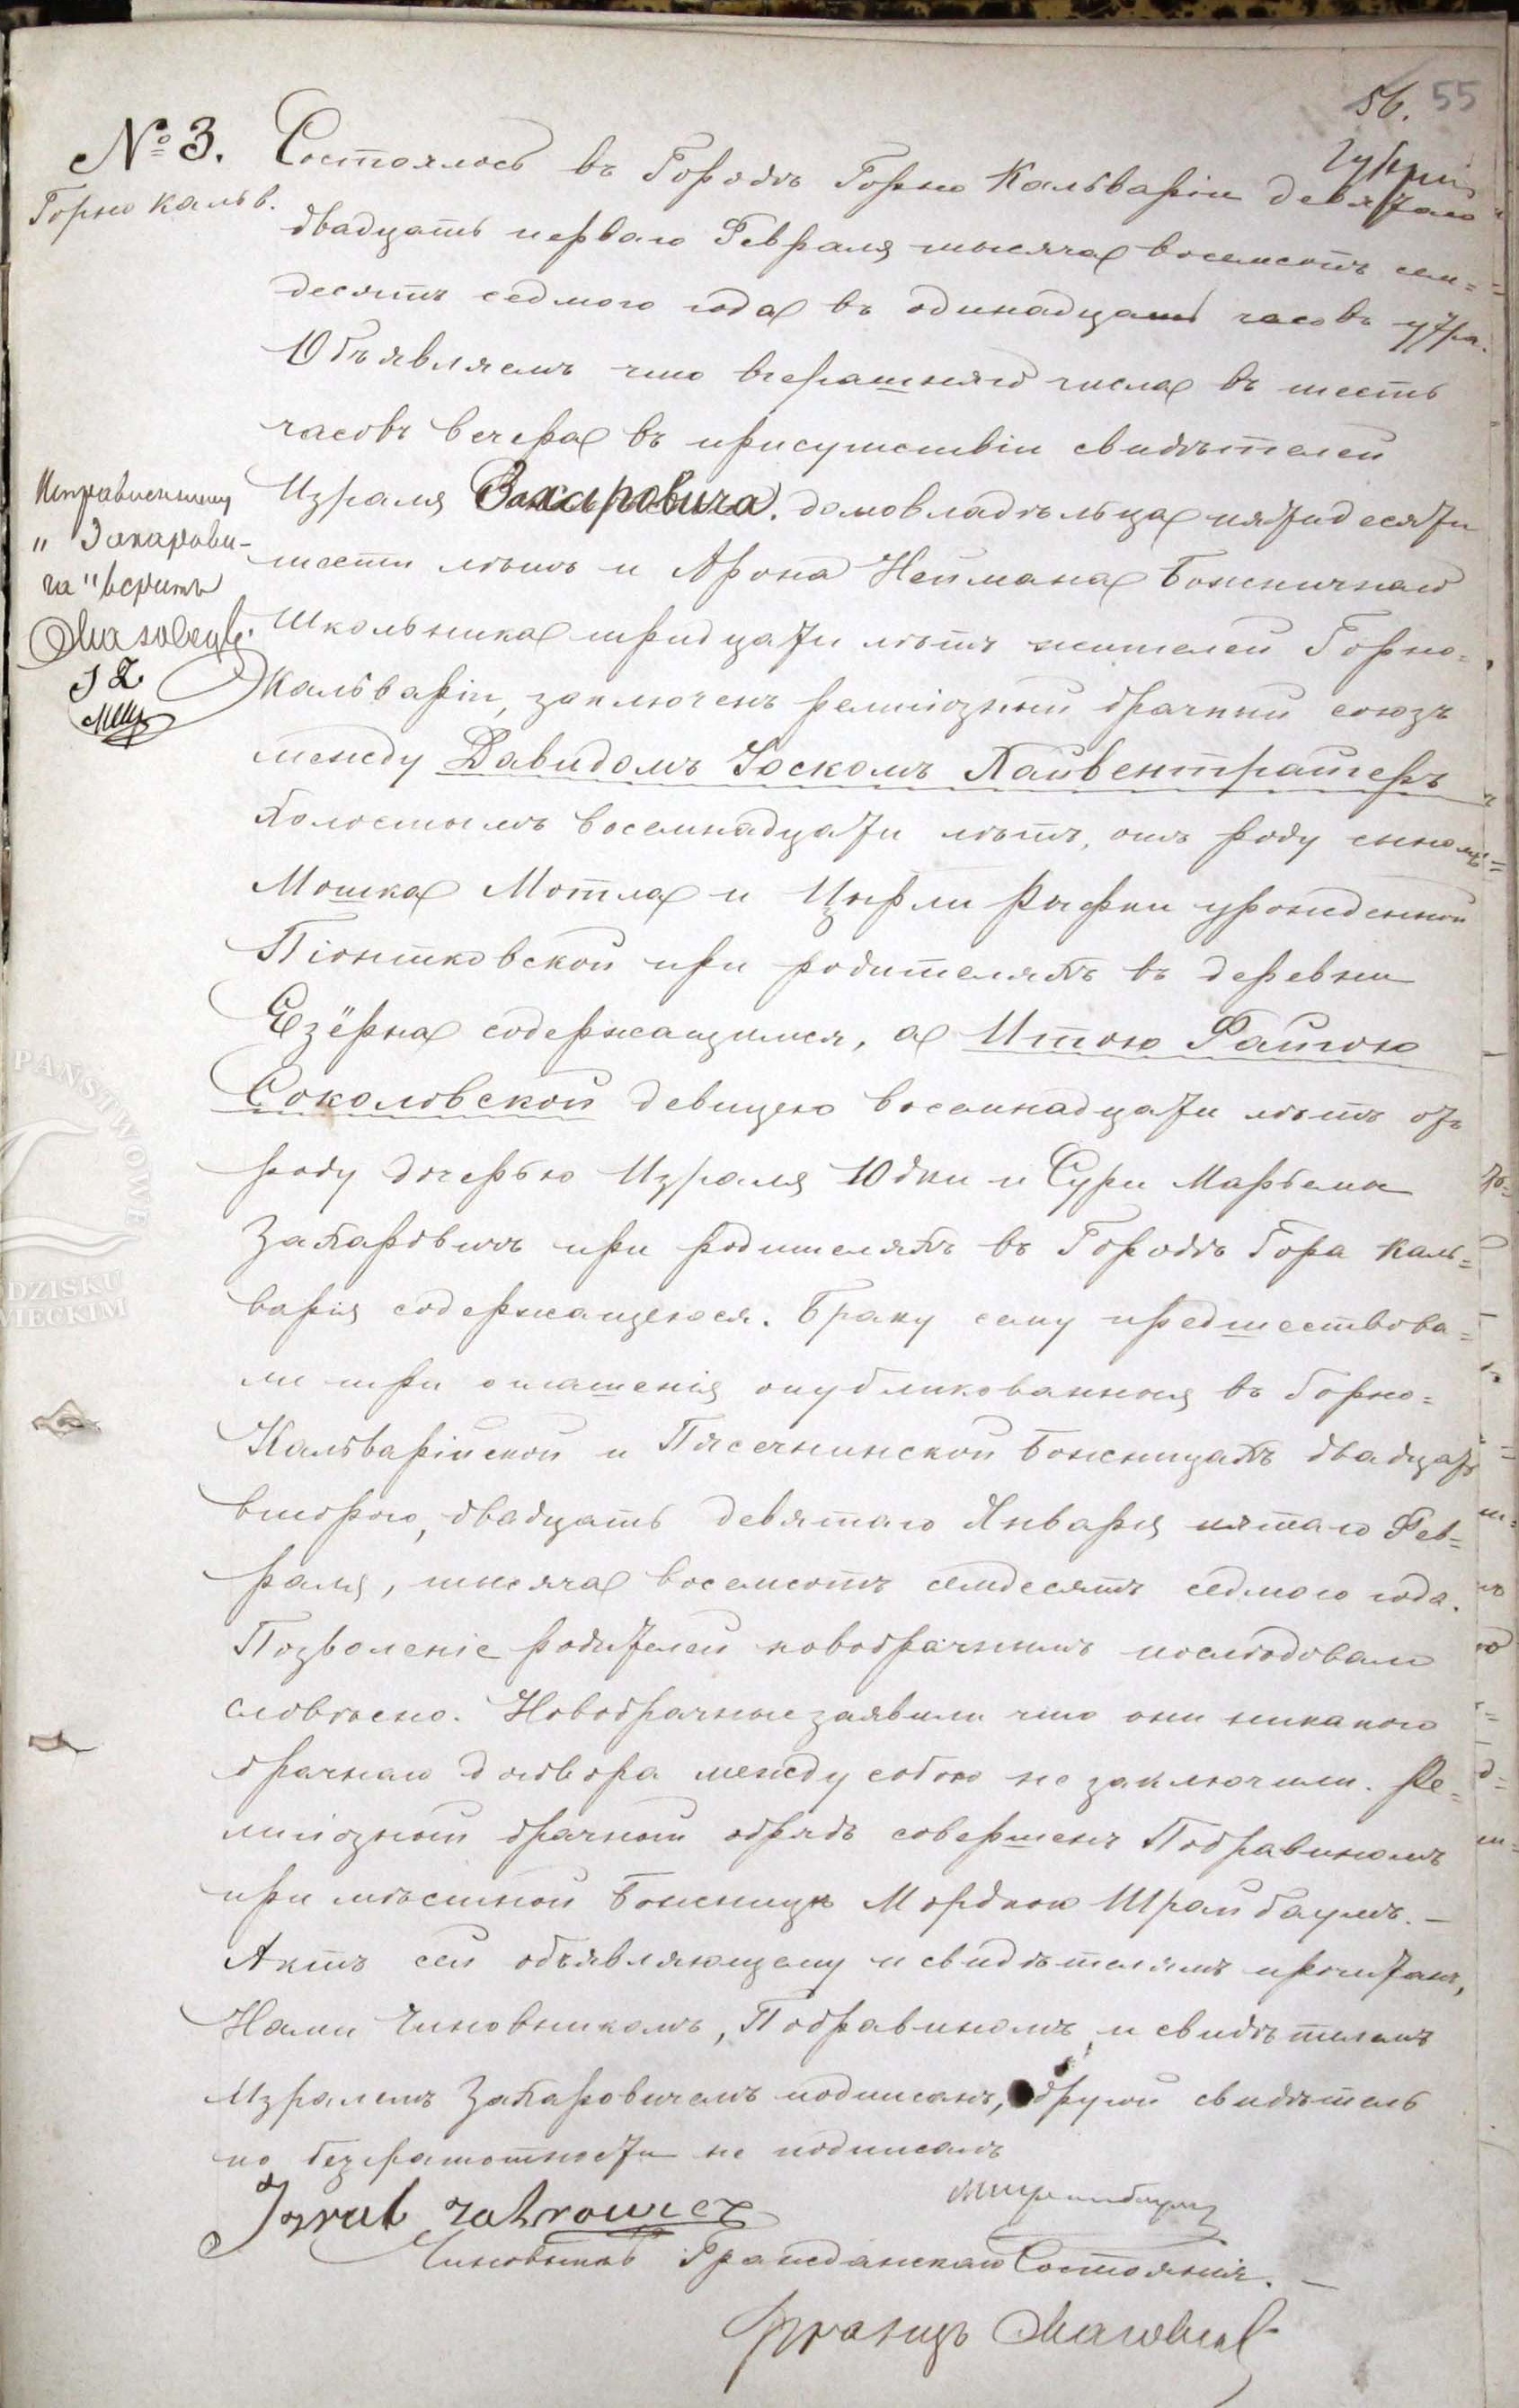 56. 55
№ 3.
Горно Кальв.
Состоялось въ Городѣ Горно Кальваріи девятаго
двадцать перваго Февраля тысяча восемсотъ сем=
десятъ седмого года въ одинадцать часовъ утра.
Объявляемъ что вчерашняго числа въ шесть
часовъ вечера въ присутствіи свидѣтелей
Израля Захаровича. домовладѣльца пятидесяти
шести лѣтъ и Арона Неймана Божничнаго
Школьника тридцати лѣтъ жителей Горно=
Кальваріи, заключенъ религіозный брачный союзъ
между Давидомъ Іоскомъ Хайвентрагеръ
холостымъ восемнадцати лѣтъ, отъ роду сыномъ
Мошка Мотла и Цырли Рыфки урожденной
Піонтковской при родителяхъ въ деревни
Езёрна содержащимся, а Итою Файгою
Соколовской девицею восемнадцати лѣтъ отъ
роду дочерью Израля Юдки и Сури Марьемы
Захаровичъ при родителяхъ въ Городѣ Гора Каль=
варія содержащеюся. Браку сему предшествова=
ли три оглашенія опубликованныя въ Горно=
Кальварійской и Пясечнинской Божницахъ двадцать
втораго, двадцать девятаго Января пятаго Фев=
раля, тысяча восемсотъ семдесятъ седмого года.
Позволеніе родителей новобрачнымъ послѣдовало
словѣсно. Новобрачные заявили что они никакого
брачнаго договора между собою не заключили. Ре=
лигіозный брачный обрядъ совершенъ Подравиномъ
при мѣстной Божницѣ Мордкой Шрайбаумъ. —
Актъ сей объявляющему и свидѣтелямъ прочитанъ,
Нами Чиновникомъ, Подравиномъ и свидѣтелемъ
Изралемъ Захаровичемъ подписанъ, другой свидѣтель
по безграмотности не подписалъ
Исправленному
" Захарови-
ча" верить
Izrael Zahrowicz
Чиновникъ Гражданскаго Состоянія. —
Францъ
PAŃSTWOWE